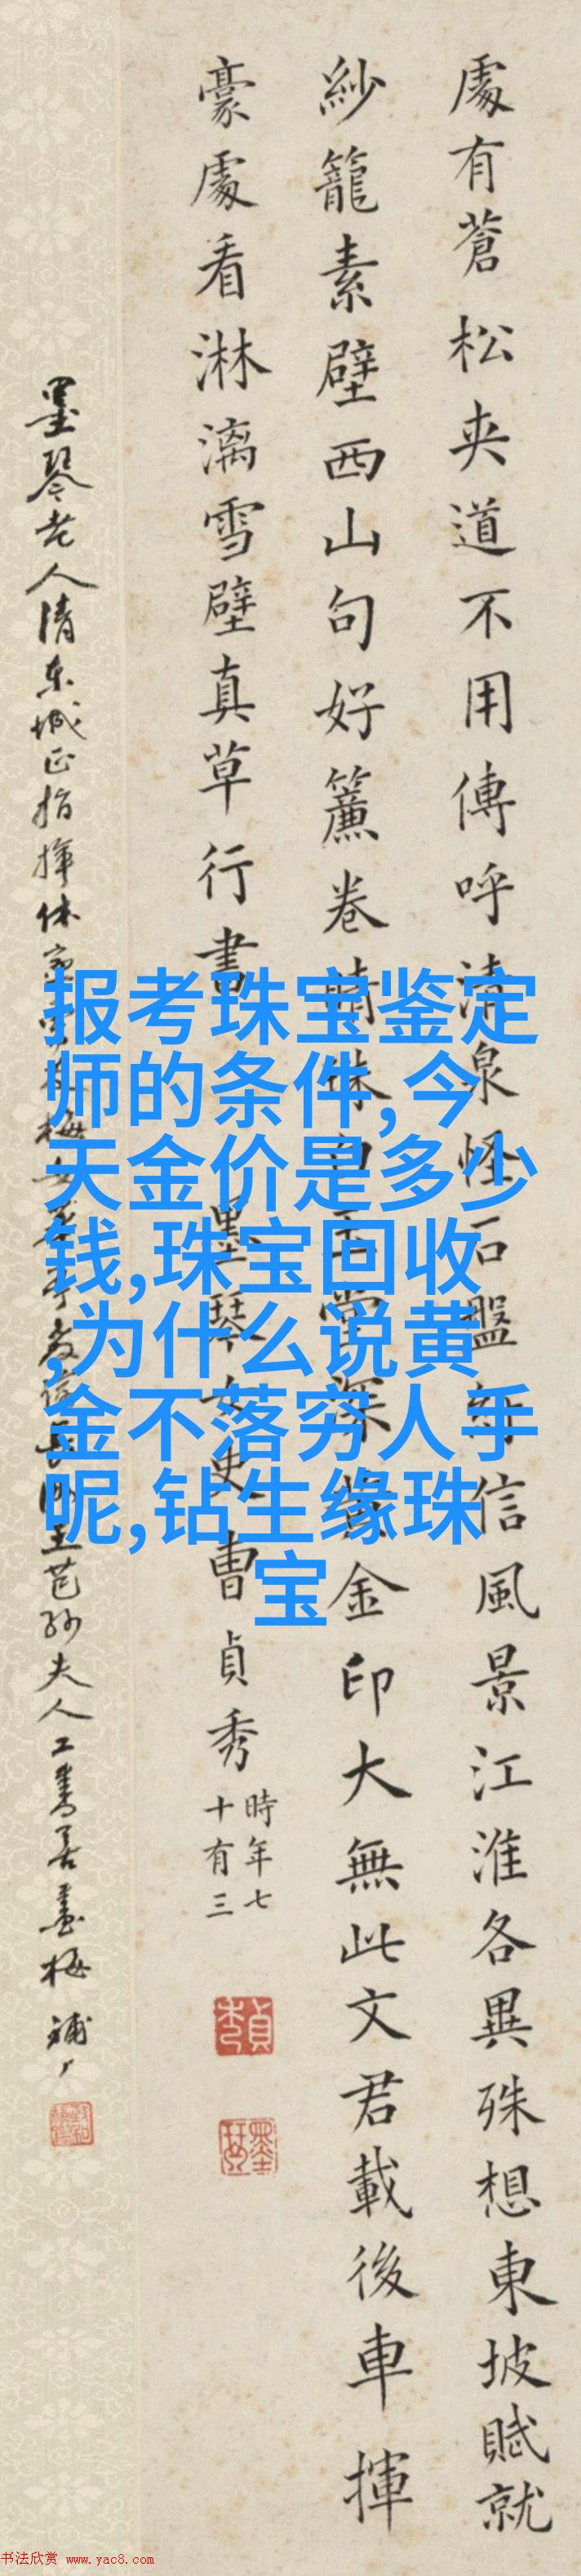 處有蒼松夾道不用傳呼清泉怪石盤紆信風景江淮各異殊想東坡賦就
紗籠素壁西山句好簾卷晴珠白玉堂深黃金印大無此文君載後車揮
豪處看淋漓雪壁真草行書
墨琴女史曹貞秀
時年七
十有三
墨琴老人清東城正指揮
王芑孫夫人工書善畫梅
報考珠宝鉴定
师的条件,今
天金价是多少
钱,珠宝回收
,为什么说黄
金不落穷人手
呢,钻生缘珠
宝
书法欣赏 www.yac8.com